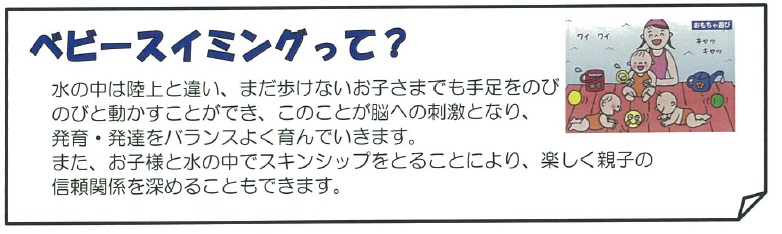 ベビースイミングって？
おもちゃ遊び
ワイ ワイ
キャッ
キャッ
水の中は陸上と違い、まだ歩けないお子さまでも手足をのび
のびと動かすことができ、このことが脳への刺激となり、
発育・発達をバランスよく育んでいきます。
また、お子様と水の中でスキンシップをとることにより、楽しく親子の
信頼関係を深めることもできます。